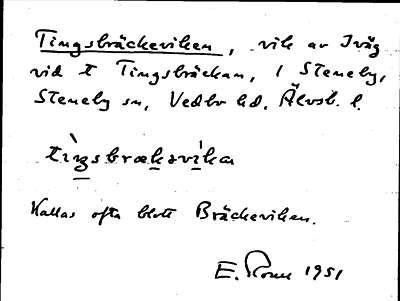 Tingsbräckeviken, vik av Iväg
vid t Tingsbräckan, 1 Steneby,
Steneby sn, Vedbo hd, Älvsb. l.
tìŋsbrækəvìka
Kallas ofta blott Bräckeviken.
E. 1951